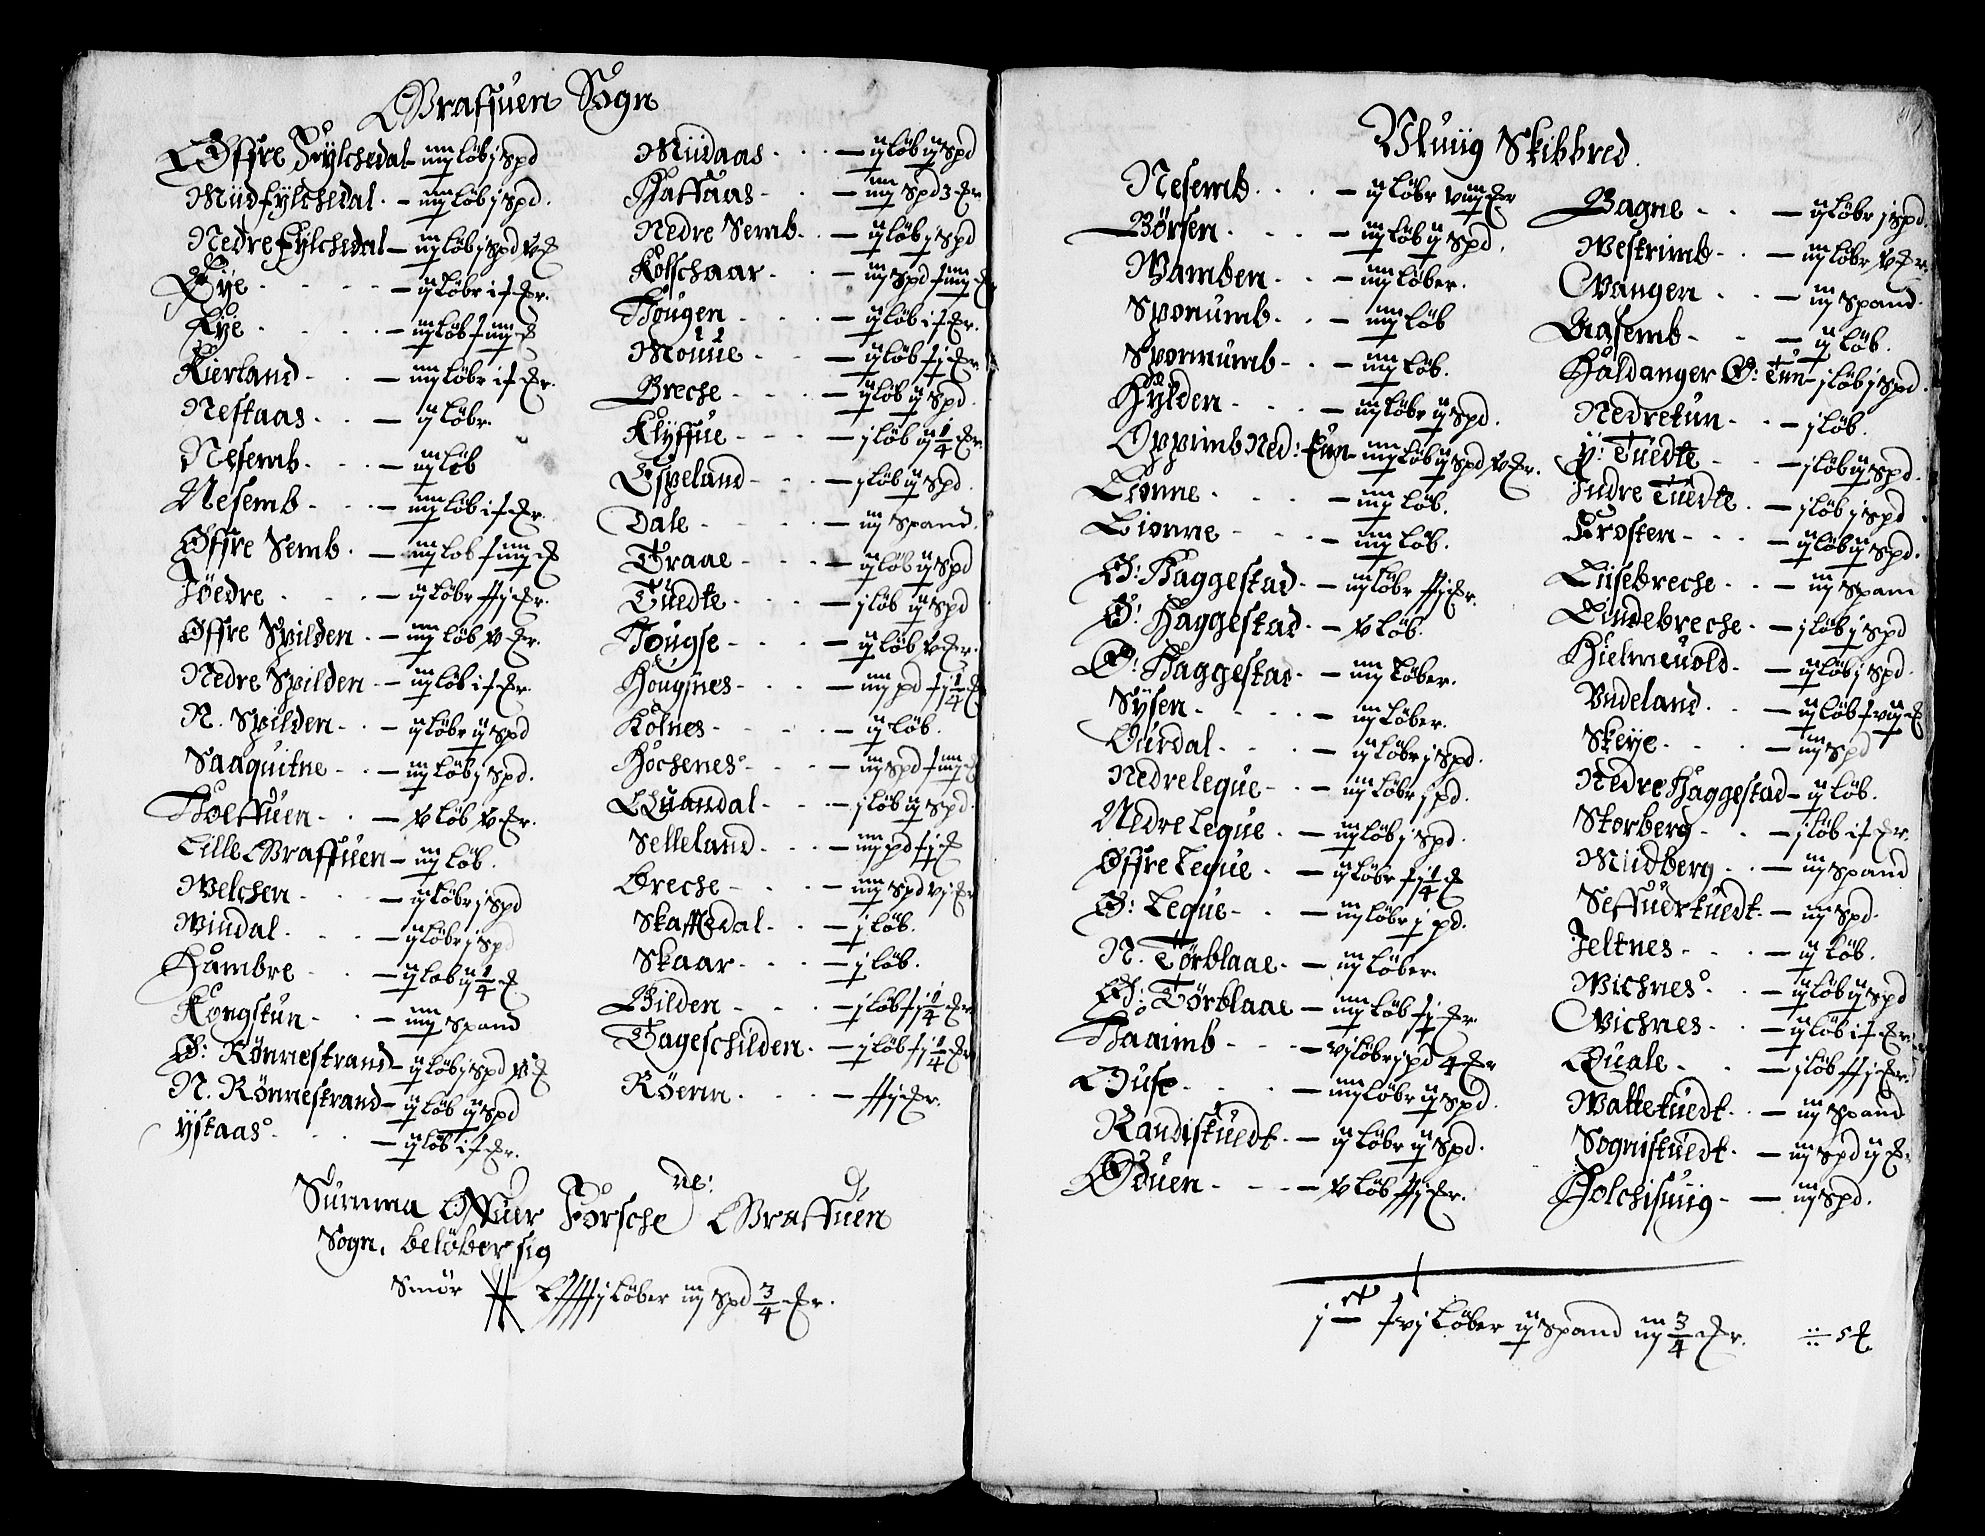 Graffuen Sogn
Øffre Fylchedal – iiij løb j spd
Midfylchedal – iiij løb j spd.
Nedre Fylchedal – iij løb j spd v £
Eye – ij løbr
Kye – iij løb
Kierland – iiij løbr
Nestaas – ij løbr.
Nesemb – iij løb
Nesemb – iiij løb
Øffre Semb – iij løb
Jöedre – ij løbr
Øffre Spilden – iiij løb v £r.
Nedre Spilden – iij løb
N. Spilden – ij løbr ij spd
Saaquitne – iij løb j spd.
Tloeffuen – v løb v £r.
Lille Graffuen – iij løb.
Welchen – ij løbr j spd
Windal – ij løbr j spd
Hambre – ij løb ij 1/4 £
Kongstun – iiij spand
Ø: Rönnestrand – ij løb j spd
N. Rönnestrand – ij løb ij spd
ystaas – ij løb
Midaas – ij løb ij spd
Haffaas – iiij spd 3 £r
Nedre Semb – ij løb j spd
Kolschaar – iij spd
Tougen – ij løb
Mouue – ij løb
Breche – ij løb ij spd
Klyffue – j løb ij 1/4 £r.
Espeland – j løb ij spd.
Dale – iij spand.
Traae – ij løb ij spd
Tuedte – j løb ij spd
Jougse – ij løb v £r.
Hougsnes – iiij pd
Kolnes – ij løb.
Hochenes – iij spd
Quandal – j løb ij spd.
Selleland – iiij pd
Breche – iiij spd vj £r
Skaffledal – j løb.
Skaar – j løb.
Gilden – j løb
Tageschilden – j løb
Röenn
Summa Offuer Forsche ne: Graffuen
Sogn, beløber sig
Smör løber iij spd 3/4 £r.
Vluiig Skibbred.
Nesemb – ij løbr viij £r
Børsen – iij løb ij spd.
Wamben – iiij løber.
Sponumb – iiij løb
Sponnumb – iiij løb.
Hylden – iij løbr ij spd.
Oppimb Ned: Tun – iiij løb ij spd v £r.
Lionne – iiij løb.
Lionne – iiij løb.
Ø: Haggestad – iij løbr
Ø: Haggestad – v løb.
Ø: Haggestad – iiij løber.
Sysen – iij løber.
Ourdal – ij løbr j spd.
Nedre leque – iij løbr j pd.
Nedre Leque – iij løb j spd.
Øffre Leque – ij løbr
Ø: Leque – iij løbr j pd.
N. Törblaae – iij løber.
Ø: Törblaae – iiij løb
Haaimb – vj løbr j pd 4 £r
Buse – iiij løbr ij spd.
Randistuedt – ij løbr ij spd.
Øduen – v løb
Bagne – ij løbr j spd
Westrimb – iij løbr v £r.
Wangen – iij spand.
Aasemb – ij løb.
Haldanger Ø: Tun – j løb j spd.
Nedretun – j løb.
y: Tuedte – j løb ij spd.
Indre Tuedte – j løb j spd
Trosten – ij løb ij spd.
Liisebreche – iij spann
Lindebreche – j løb j spd
Hielmeuold – ij løb j spd.
Vndeland – ij løb
Skeye – iij spd
Nedre Haggestad – ij løb.
Storberg – j løb
Midberg – iij spand
Seffuertuedt – iij spd.
Jeltnes – ij løb.
Wichnes – ij løb ij spd
Wichnes – ij løb
Quale – j løb
Walletuedt – iij spand
Sognistuedt – iij spd ij £r
Holchisuiig – iij spd.
løber ij spand iij 3/4 £r.